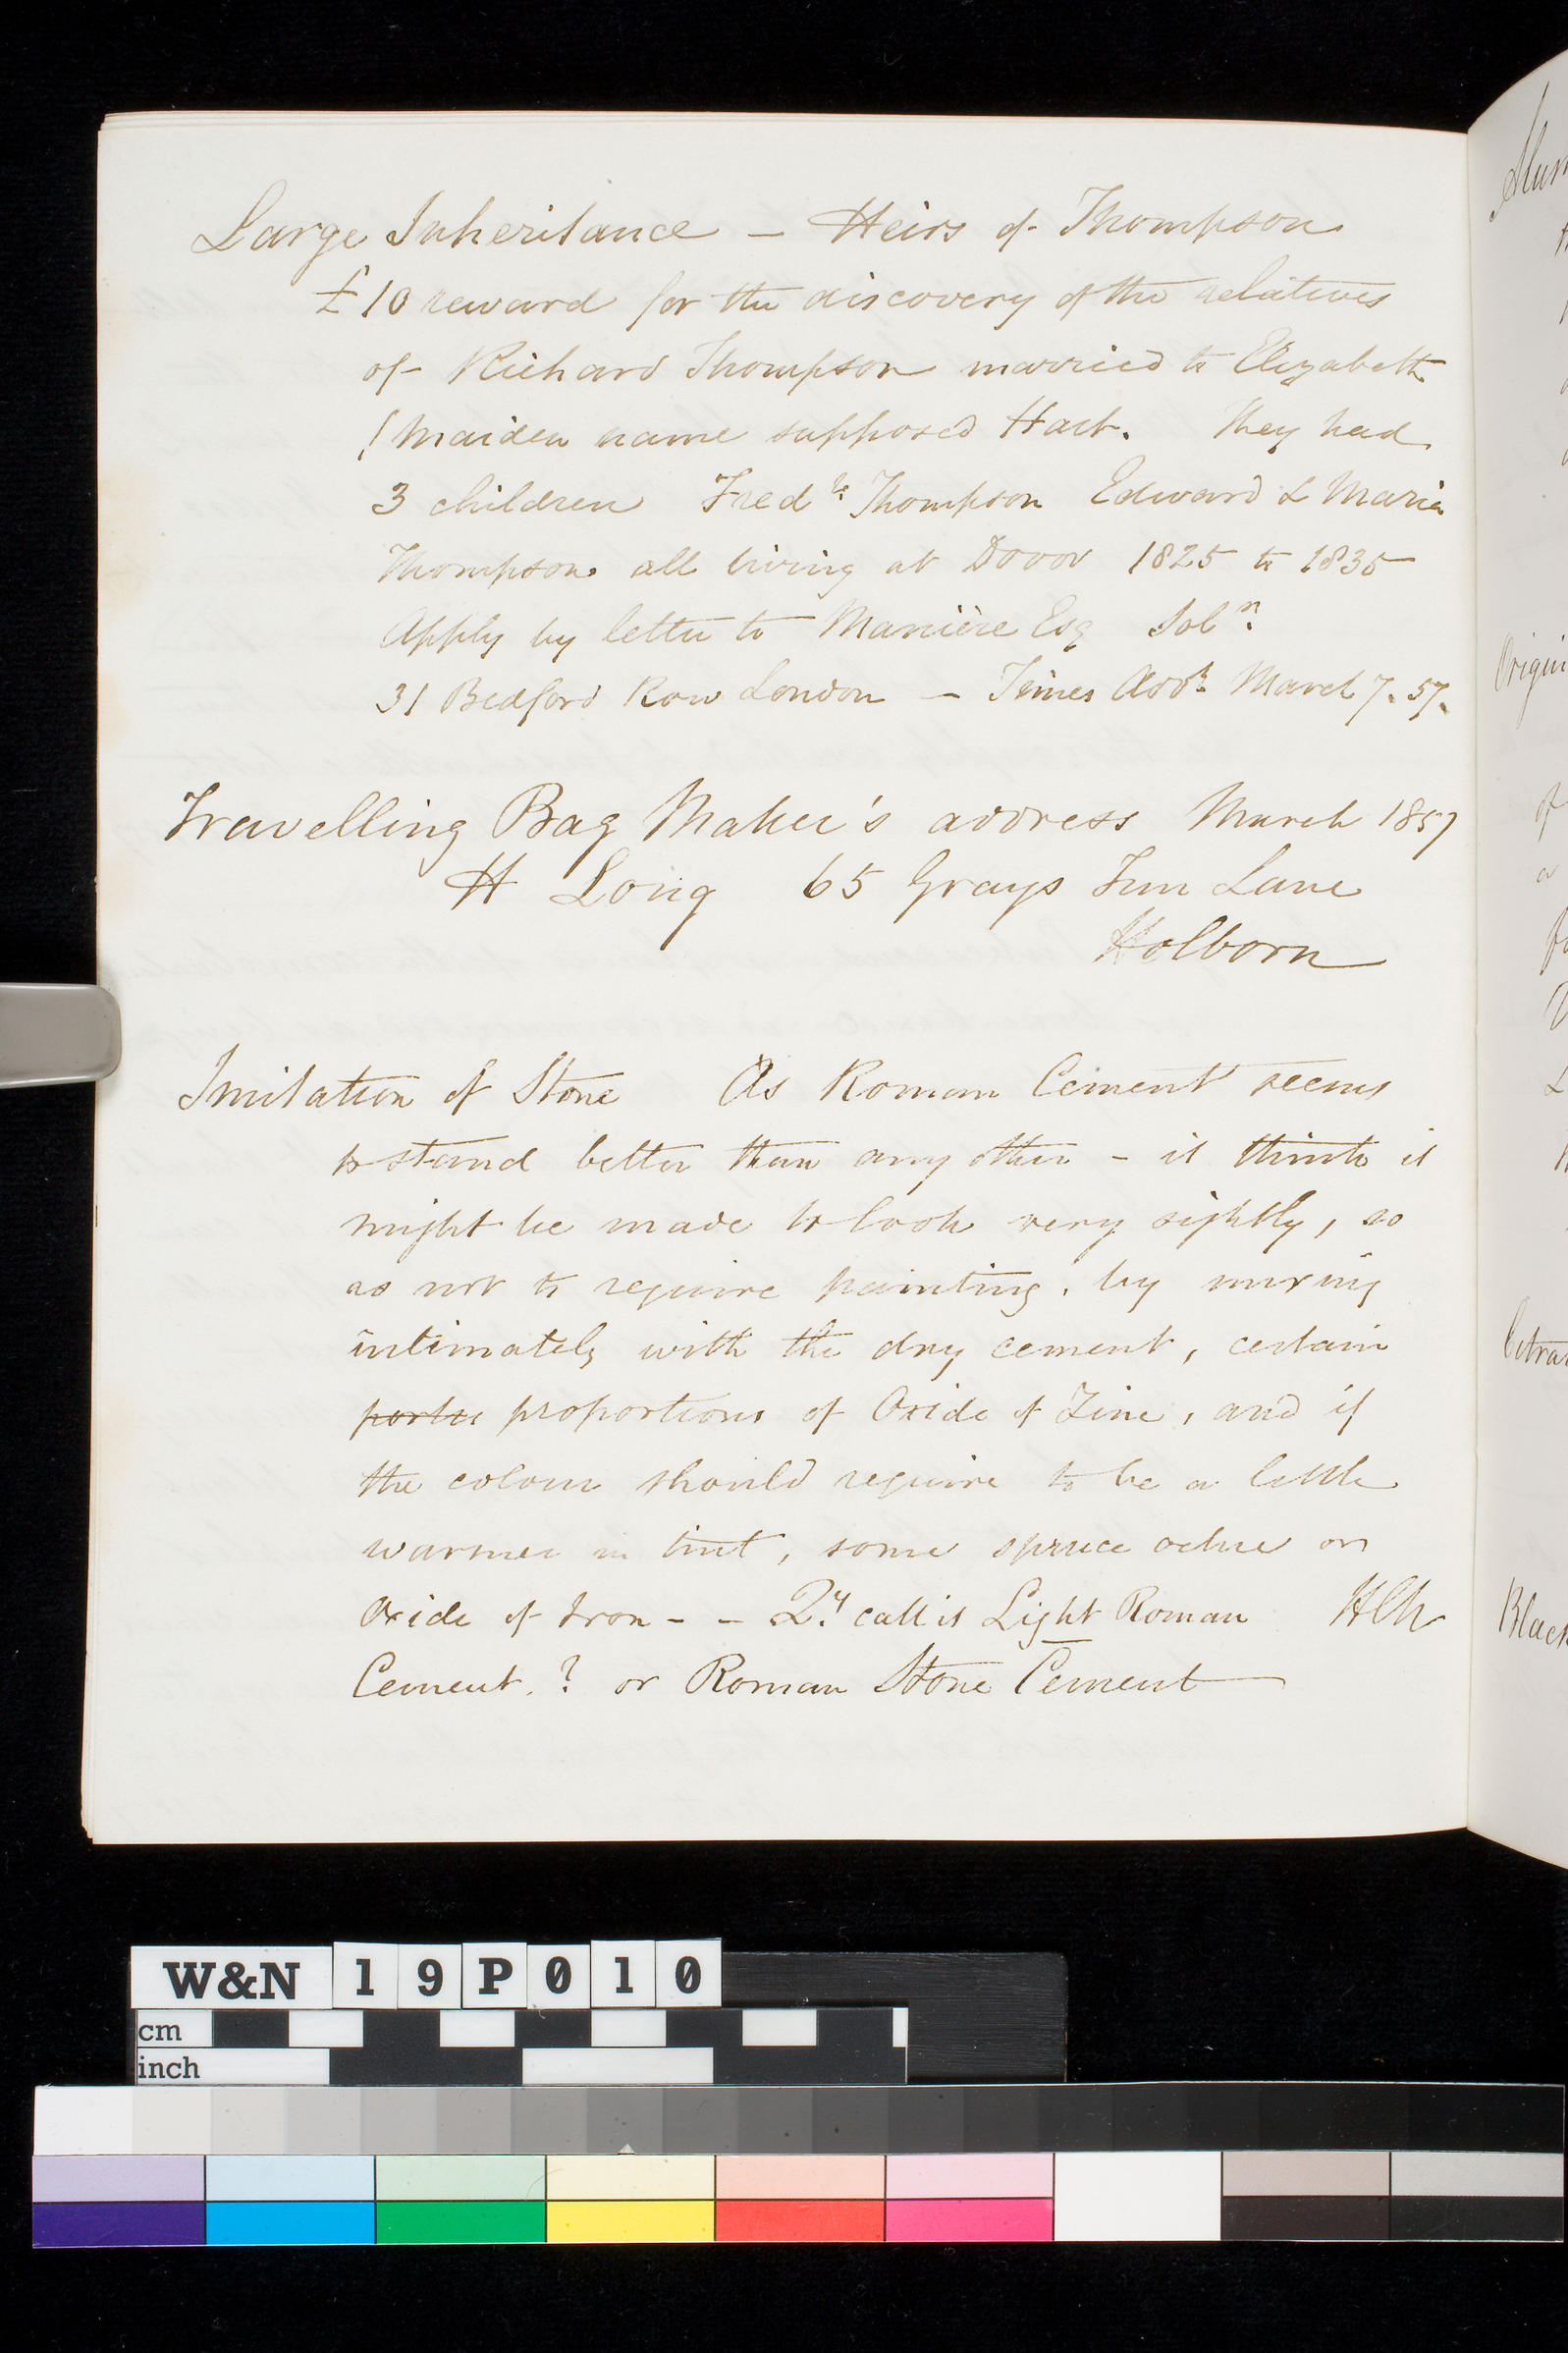 Large Inheritance – Heirs of Thompson
£10 reward for the discovery of the relatives
of Richard Thompson married to Elizabeth
(Maiden name supposed Hart. They had
3 children Fredk. Thompson Edward & Maria
Thompson all living at Dover 1825 to 1835
Apply by letter to Manière Esq Solr.
31 Bedford Row London – Times Advt. March 7. 57.
Travelling Bag Maker's address March 1857
H Long 65 Grays Inn Lane
Holborn
Imitation of Stone As Roman Cement seems
to stand better than any other – it think it
might be made to look very sightly, so
as not to require painting, by mixing
intimately with the dry cement, certain
proportions of Oxide of Zinc, and if
the colour should require to be a little
warmer in tint, some spruce ochre or
Oxide of Iron - - Qy. call it Light Roman
Cement. ? or Roman Stone Cement
Origin
of
a
Black
W&N 19P010
cm
inch